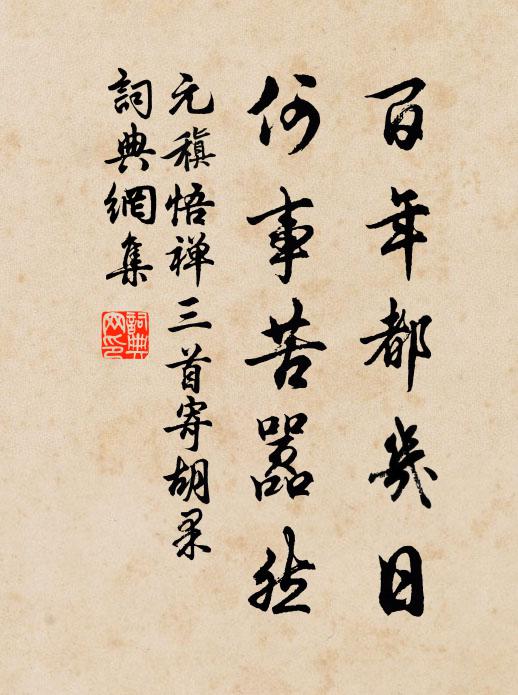 百年都幾日
何事苦囂然
元稹悟禅三首寄胡杲
詞典網集
詞典網印